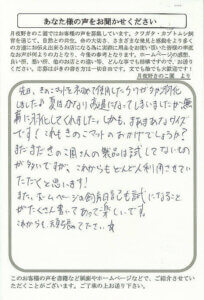 あなた様の声をお聞かせください
月夜野きのこ園ではお客様の声を募集しています。クワガタ・カブトムシ飼
育を通じて、自然との共生、命の大切さ、さまざまな発見と感動をより多く
月夜野きのこ園 より
先日、きのこマットを初めて使用したらクワガタが羽化
しました♪夏はかなり高温になってしまいましたが無
事に羽化してくれました。しかも、まあまあなサイズ
です！これもきのこマットのおかげでしょうか？
まだまだきのこ園さんの製品は試してないもの
が多いですが、これからもどんどん利用させてい
ただこうと思います！
また、ホームページも飼育日記も試しになること
がたくさん書いてあって楽しいです。
これからも頑張って下さい。☆
このお客様の声を書籍など紙面やホームページなどで、ご紹介させてい
ただくことがございます。ご了承の上お送り下さい。